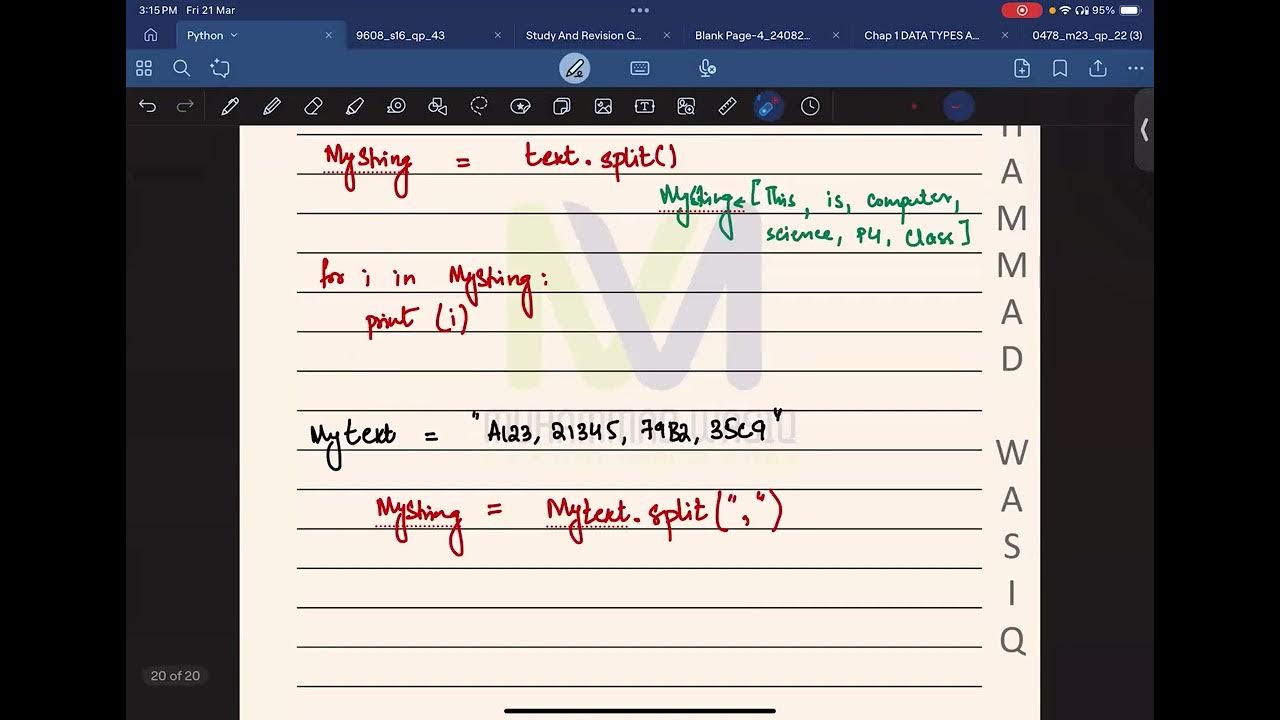 3:15 PM Fri 21 Mar
95%
Python
9608_s16_qp_43
Study And Revision G...
Blank Page-4_24082...
Chap 1 DATA TYPES A...
0478_m23_qp_22 (3)
MyString = text.split()
MyString = [This, is, computer,
science, P4, Class]
for i in MyString:
print (i)
Mytext = "A123, 21345, 79B2, 35C9"
MyString = Mytext.split(",")
MUHAMMAD WASIQ
HAMMAD WASIQ
20 of 20